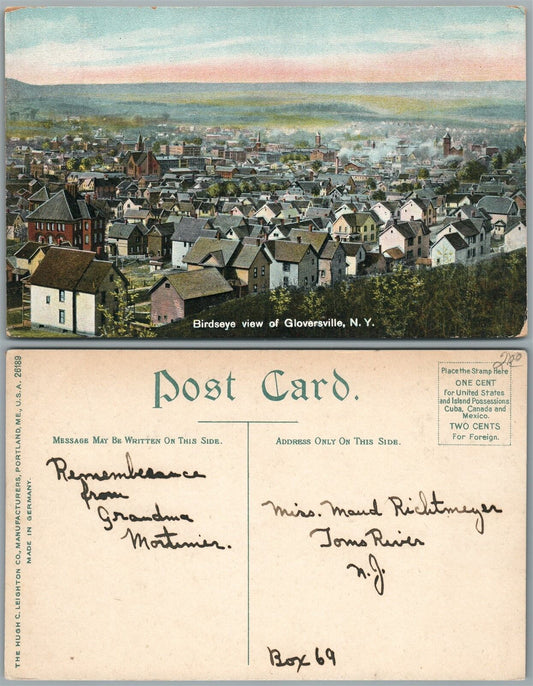 Birdseye view of Gloversville, N.Y.
THE HUGH C. LEIGHTON CO., MANUFACTURERS, PORTLAND, ME., U.S.A. 26189
MADE IN GERMANY.
Post Card.
MESSAGE MAY BE WRITTEN ON THIS SIDE.
ADDRESS ONLY ON THIS SIDE.
Place the Stamp Here
ONE CENT
for United States
and Island Possessions
Cuba, Canada and
Mexico.
TWO CENTS
For Foreign.
Remembesance
from
Grandma
Mortimer.
Miss. Maud Richtmeyer
Toms River
N.J.
Box 69